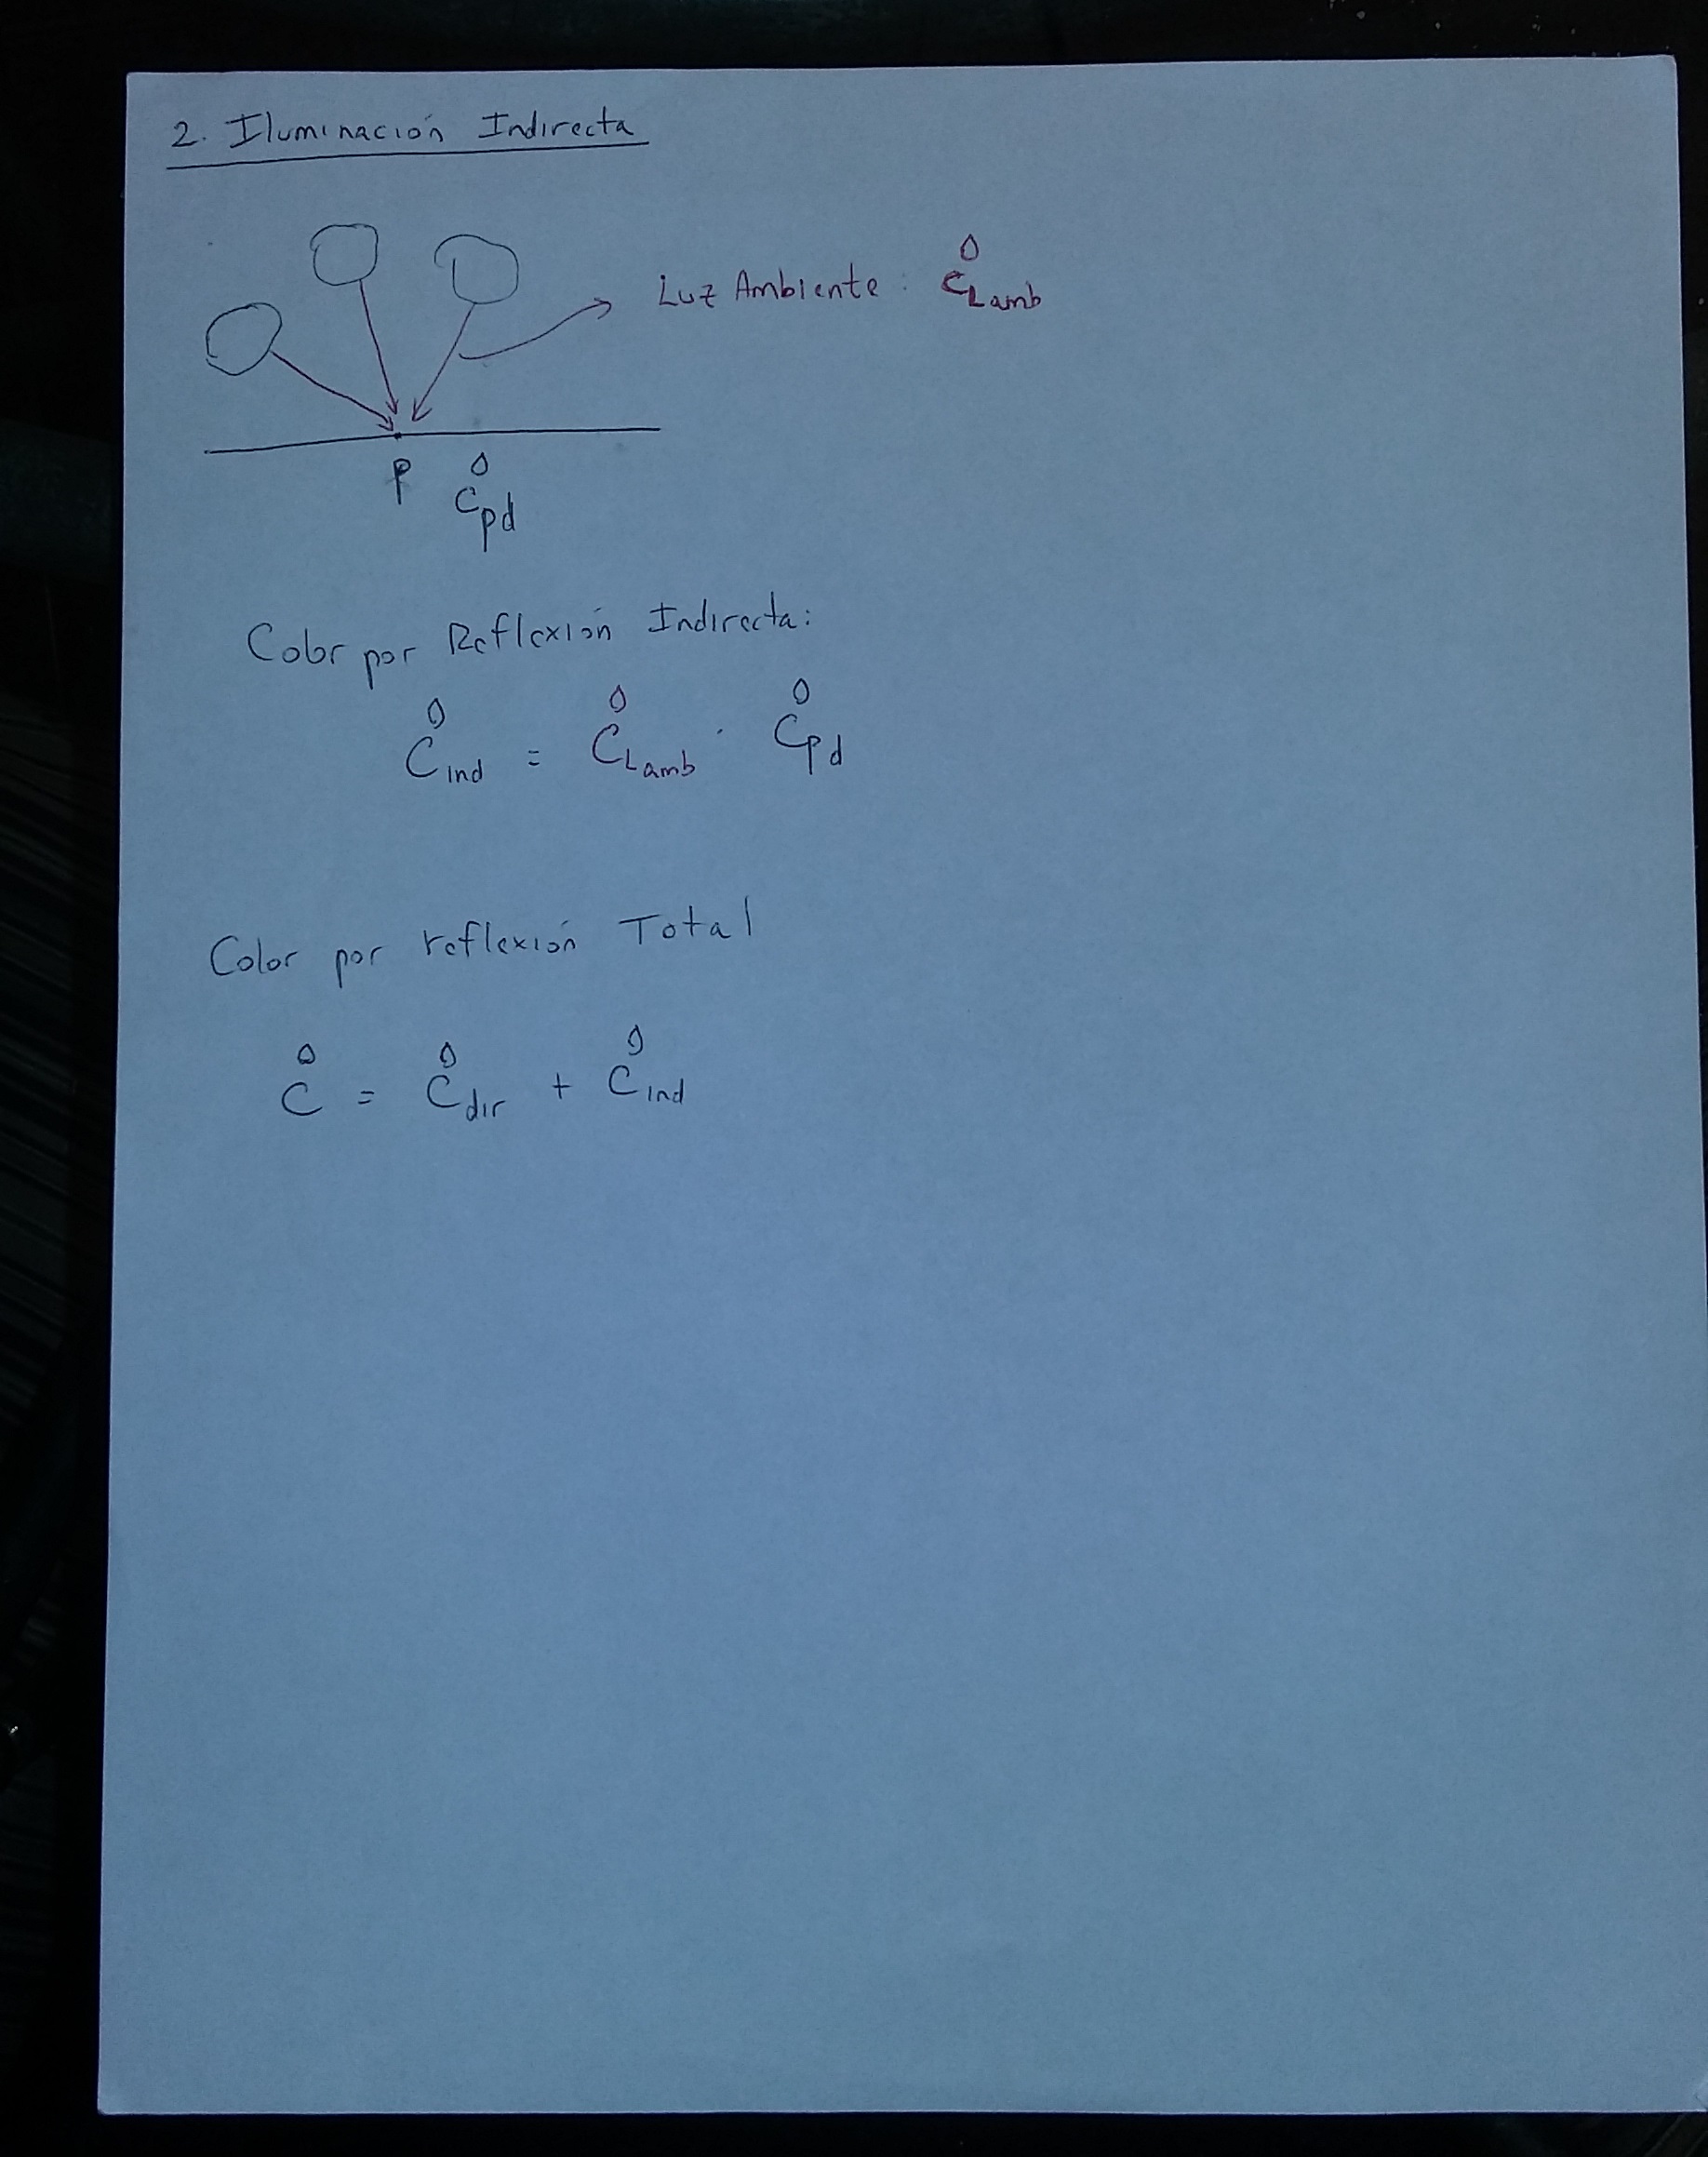 2. Iluminación Indirecta
Luz Ambiente: C̊Lamb
P C̊pd
Color por Reflexión Indirecta:
C̊ind = C̊Lamb · C̊pd
Color por reflexión Total
C̊ = C̊dir + C̊ind